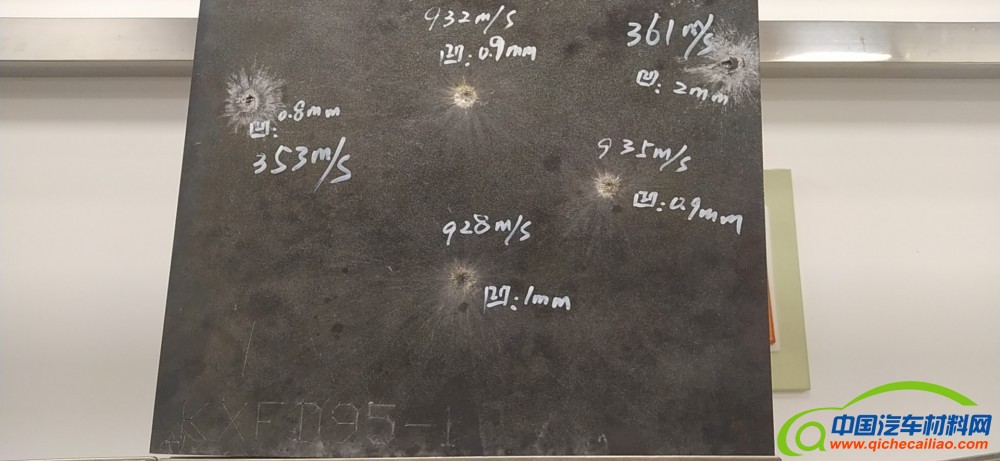 932m/s
凹:0.9mm
361m/s
凹:2mm
凹:0.8mm
353m/s
935m/s
凹:0.9mm
928m/s
凹:1mm
KXFD95-1
中国汽车材料网
www.qichecailiao.com